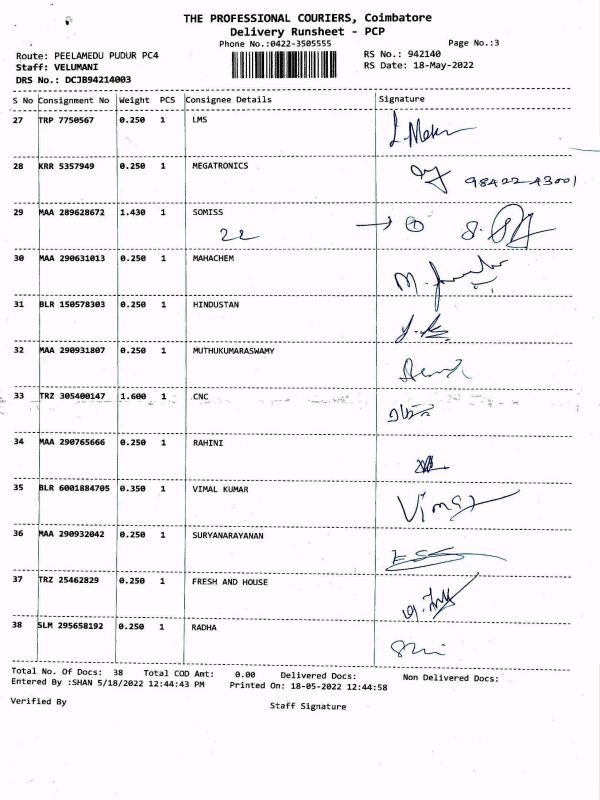 THE PROFESSIONAL COURIERS, Coimbatore
Delivery Runsheet - PCP
Phone No.:0422-3505555 Page No.:3
Route: PEELAMEDU PUDUR PC4 RS No.: 942140
Staff: VELUMANI RS Date: 18-May-2022
DRS No.: DCJB94214003
S No Consignment No Weight PCS Consignee Details Signature
27 TRP 7750567 0.250 1 LMS
28 KRR 5357949 0.250 1 MEGATRONICS
98422 43001
29 MAA 289628672 1.430 1 SOMISS
22
30 MAA 290631013 0.250 1 MAHACHEM
31 BLR 150578303 0.250 1 HINDUSTAN
32 MAA 290931807 0.250 1 MUTHUKUMARASWAMY
33 TRZ 305400147 1.600 1 CNC
34 MAA 290765666 0.250 1 RAHINI
35 BLR 6001884705 0.350 1 VIMAL KUMAR
36 MAA 290932042 0.250 1 SURYANARAYANAN
37 TRZ 25462829 0.250 1 FRESH AND HOUSE
38 SLM 295658192 0.250 1 RADHA
Total No. Of Docs: 38 Total COD Amt: 0.00 Delivered Docs: Non Delivered Docs:
Entered By :SHAN 5/18/2022 12:44:43 PM Printed On: 18-05-2022 12:44:58
Verified By Staff Signature